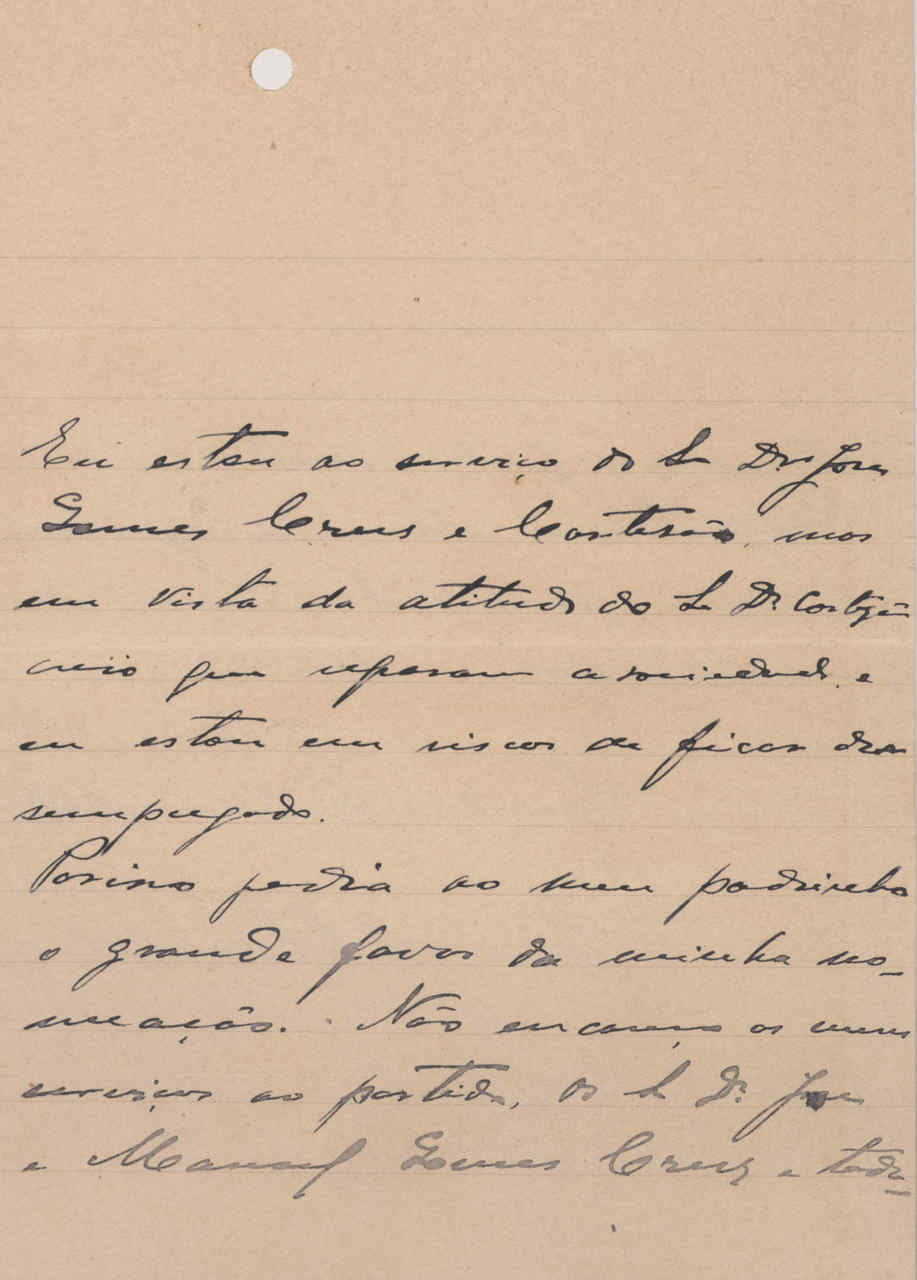 Eu estou ao serviço do Sr Drs José
Gomes Cruz e Cortesão, mas
em vista da atitude do Sr Dr. Cortesão
creio que separam a sociedade, e
eu estou em riscos de ficar de
sempregado.
Por isso pedia ao meu padrinho
o grande favor da minha no-
meação. Não encareço os meus
serviços ao partido, os Sr Dr. José
e Manuel Gomes Cruz e toda